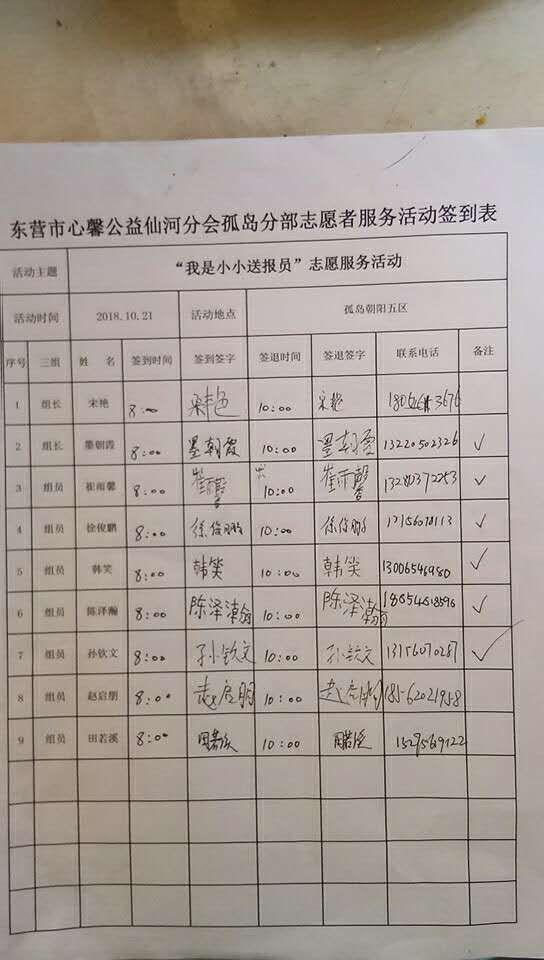 东营市心馨公益仙河分会孤岛分部志愿者服务活动签到表
活动主题 “我是小小送报员”志愿服务活动
活动时间 2018.10.21 活动地点 孤岛朝阳五区
序号 三组 姓 名 签到时间 签到签字 签退时间 签退签字 联系电话 备注
1 组长 宋艳 8:00 宋艳 10:00 宋艳
2 组长 墨朝霞 8:00 墨朝霞 10:00 墨朝霞 13220502326 ✓
3 组员 崔雨馨 8:00 崔雨馨 10:00 崔雨馨 13280372253 ✓
4 组员 徐俊鹏 8:00 徐俊鹏 10:00 徐俊鹏 ✓
5 组员 韩笑 8:00 韩笑 10:00 韩笑 13006546980 ✓
6 组员 陈泽瀚 8:00 陈泽瀚 10:00 陈泽瀚 ✓
7 组员 孙钦文 8:00 孙钦文 10:00 孙钦文 13156070287 ✓
8 组员 赵启朋 8:00 赵启朋 10:00 赵启朋
9 组员 田若溪 8:00 田若溪 10:00 田若溪